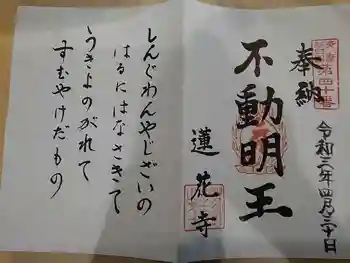 奉納
多摩
第四十番
不動明王
蓮花寺
令和三年四月三十日
しんぐわんやじざいの
はるにはなさきて
うきよのがれて
すむやけだもの